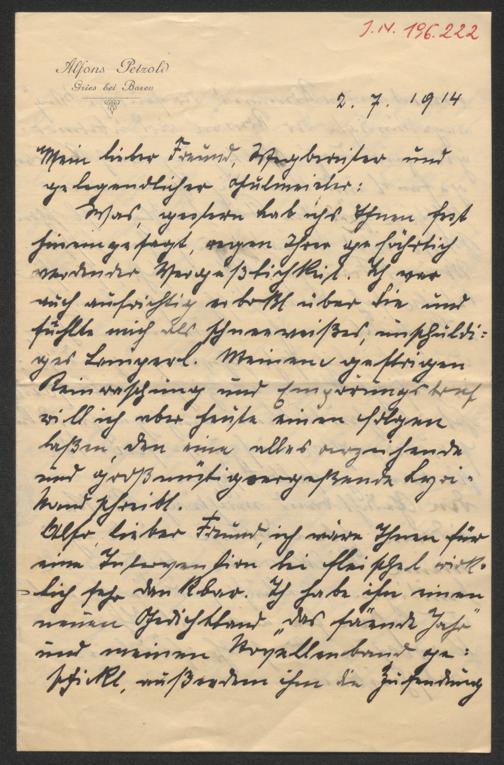 J.N. 196.222
Alfons Petzold
Gries bei Bozen
2. 7. 1914
Mein lieber Freund, Wegbereiter und
gelegendlicher Schulmeister:
Was, gestern hab ichs Ihnen fest
hineingesagt, wegen Ihrer gefährlich
werdender Vergeßlichkeit. Ich war
auch aufrichtig erbost über Sie und
fühlte mich als schneeweißes, unschuldi-
ges Lamperl. Meinem gestrigen
Reinwaschung und Empörungsbrief
will ich aber heute einen folgen
laßen, den eine alles verzeihende
und großmütigvergeßende
Hand schreibt.
Also lieber Freund, ich wäre Ihnen für
eine Intervention bei Fleischel wirk-
lich sehr dankbar. Ich habe ihm einen
neuen Gedichtband „das Jahr"
und meinen Novellenband ge:
schickt, außerdem ihm die Zusendung